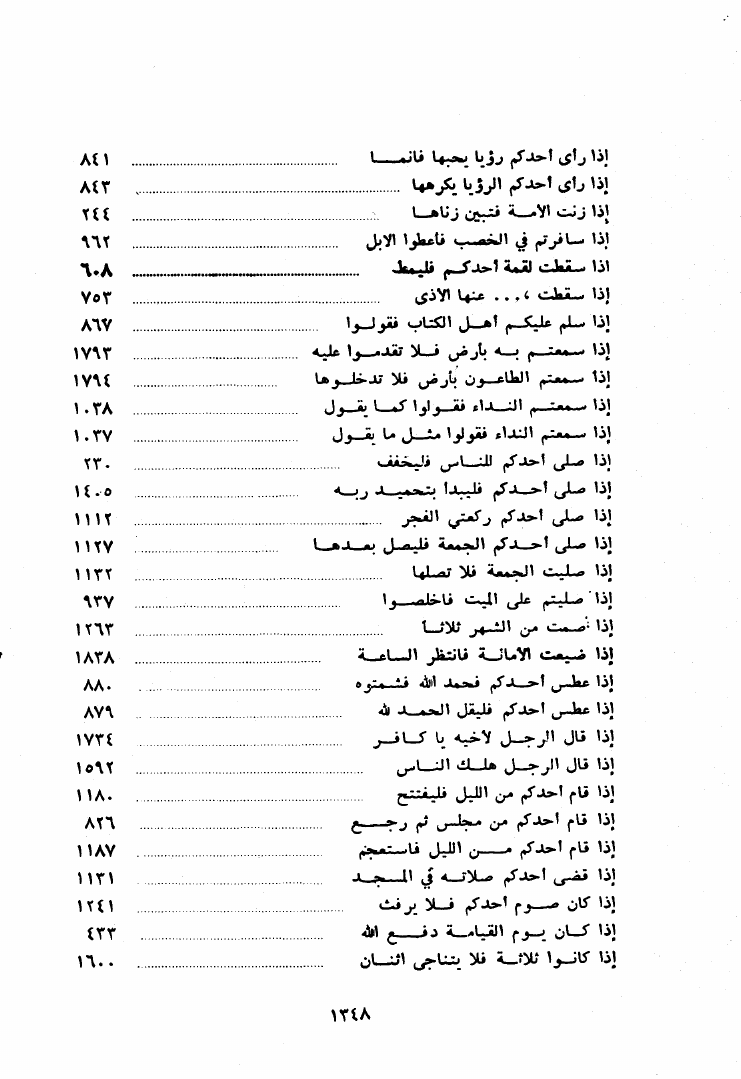 إذا رأى أحدكم رؤيا يحبها فانمـــا ........ ٨٤١
إذا رأى أحدكم الرؤيا يكرهها ........ ٨٤٣
إذا زنت الأمــة فتبين زناهــا ........ ٢٤٤
إذا سافرتم في الخصب فأعطوا الابل ........ ٩٦٢
اذا سقطت لقمة أحدكــم فليمط ........ ٦٠٨
إذا سقطت ،... عنها الأذى ........ ٧٥٣
إذا سلم عليكــم أهــل الكتاب فقولــوا ........ ٨٦٧
إذا سمعتــم بــه بأرض فــلا تقدمــوا عليه ........ ١٧٩٣
إذا سمعتم الطاعــون بأرض فلا تدخلــوها ........ ١٧٩٤
إذا سمعتــم النــداء فقــولوا كمــا يقــول ........ ١٠٣٨
إذا سمعتم النداء فقولوا مثــل ما يقــول ........ ١٠٣٧
إذا صلى أحدكم للنــاس فليخفف ........ ٢٣٠
إذا صلى أحــدكم فليبدأ بتحميــد ربــه ........ ١٤٠٥
إذا صلى أحدكم ركعتي الفجر ........ ١١١٢
إذا صلى أحــدكم الجمعة فليصل بعــدهــا ........ ١١٢٧
إذا صليت الجمعة فلا تصلها ........ ١١٣٢
إذا صليتم على الميت فاخلصــوا ........ ٩٣٧
إذا صمت من الشهر ثلاثــاً ........ ١٢٦٣
إذا ضيعت الأمانــة فانتظر الساعــة ........ ١٨٣٨
إذا عطس أحــدكم فحمد الله فشمتوه ........ ٨٨٠
إذا عطس أحدكم فليقل الحمــد لله ........ ٨٧٩
إذا قال الرجــل لأخيه يا كــافــر ........ ١٧٣٤
إذا قال الرجــل هلــك النــاس ........ ١٥٩٢
إذا قام أحدكم من الليل فليفتتح ........ ١١٨٠
إذا قام أحدكم من مجلس ثم رجــع ........ ٨٢٦
إذا قام أحدكم مــن الليل فاستعجم ........ ١١٨٧
إذا قضى أحدكم صلاتــه في المســجد ........ ١١٣١
إذا كان صــوم أحدكم فــلا يرفث ........ ١٢٤١
إذا كــان يــوم القيامــة دفــع الله ........ ٤٣٣
إذا كانــوا ثلاثــة فلا يتناجى اثنــان ........ ١٦٠٠
١٣٤٨